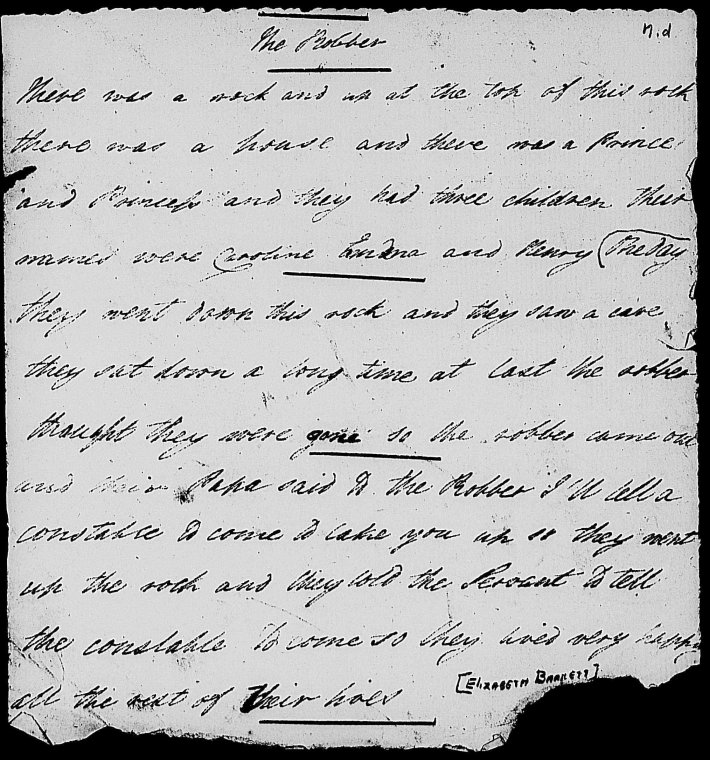 n.d
The Robber
There was a rock and up at the top of this rock
there was a house and there was a Prince
and Princess and they had three children their
names were Caroline and Henry One day
they went down this rock and they saw a cave
they sat down a long time at last the robber
thought they were gone so the robber came out
and their Papa said to the Robber I'll tell a
constable to come to take you up so they went
up the rock and they told the Servant to tell
the constable to come so they lived very happy
all the rest of their lives
[ELIZABETH BARRETT]